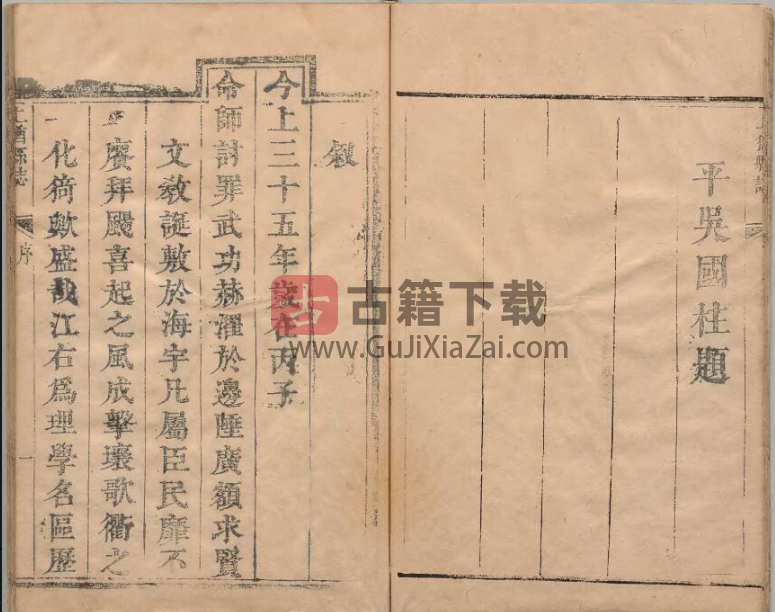 平吳國柱題
敘
今上三十五年歲在丙子
命師討罪武功赫濯於邊陲廣額求賢
文敎誕敷於海宇凡屬臣民靡不
賡拜颺喜起之風成擊壤歌衢之
化猗歟盛哉江右爲理學名區歷
上猶縣誌
序
一
古
古籍下载
www.GuJiXiaZai.com